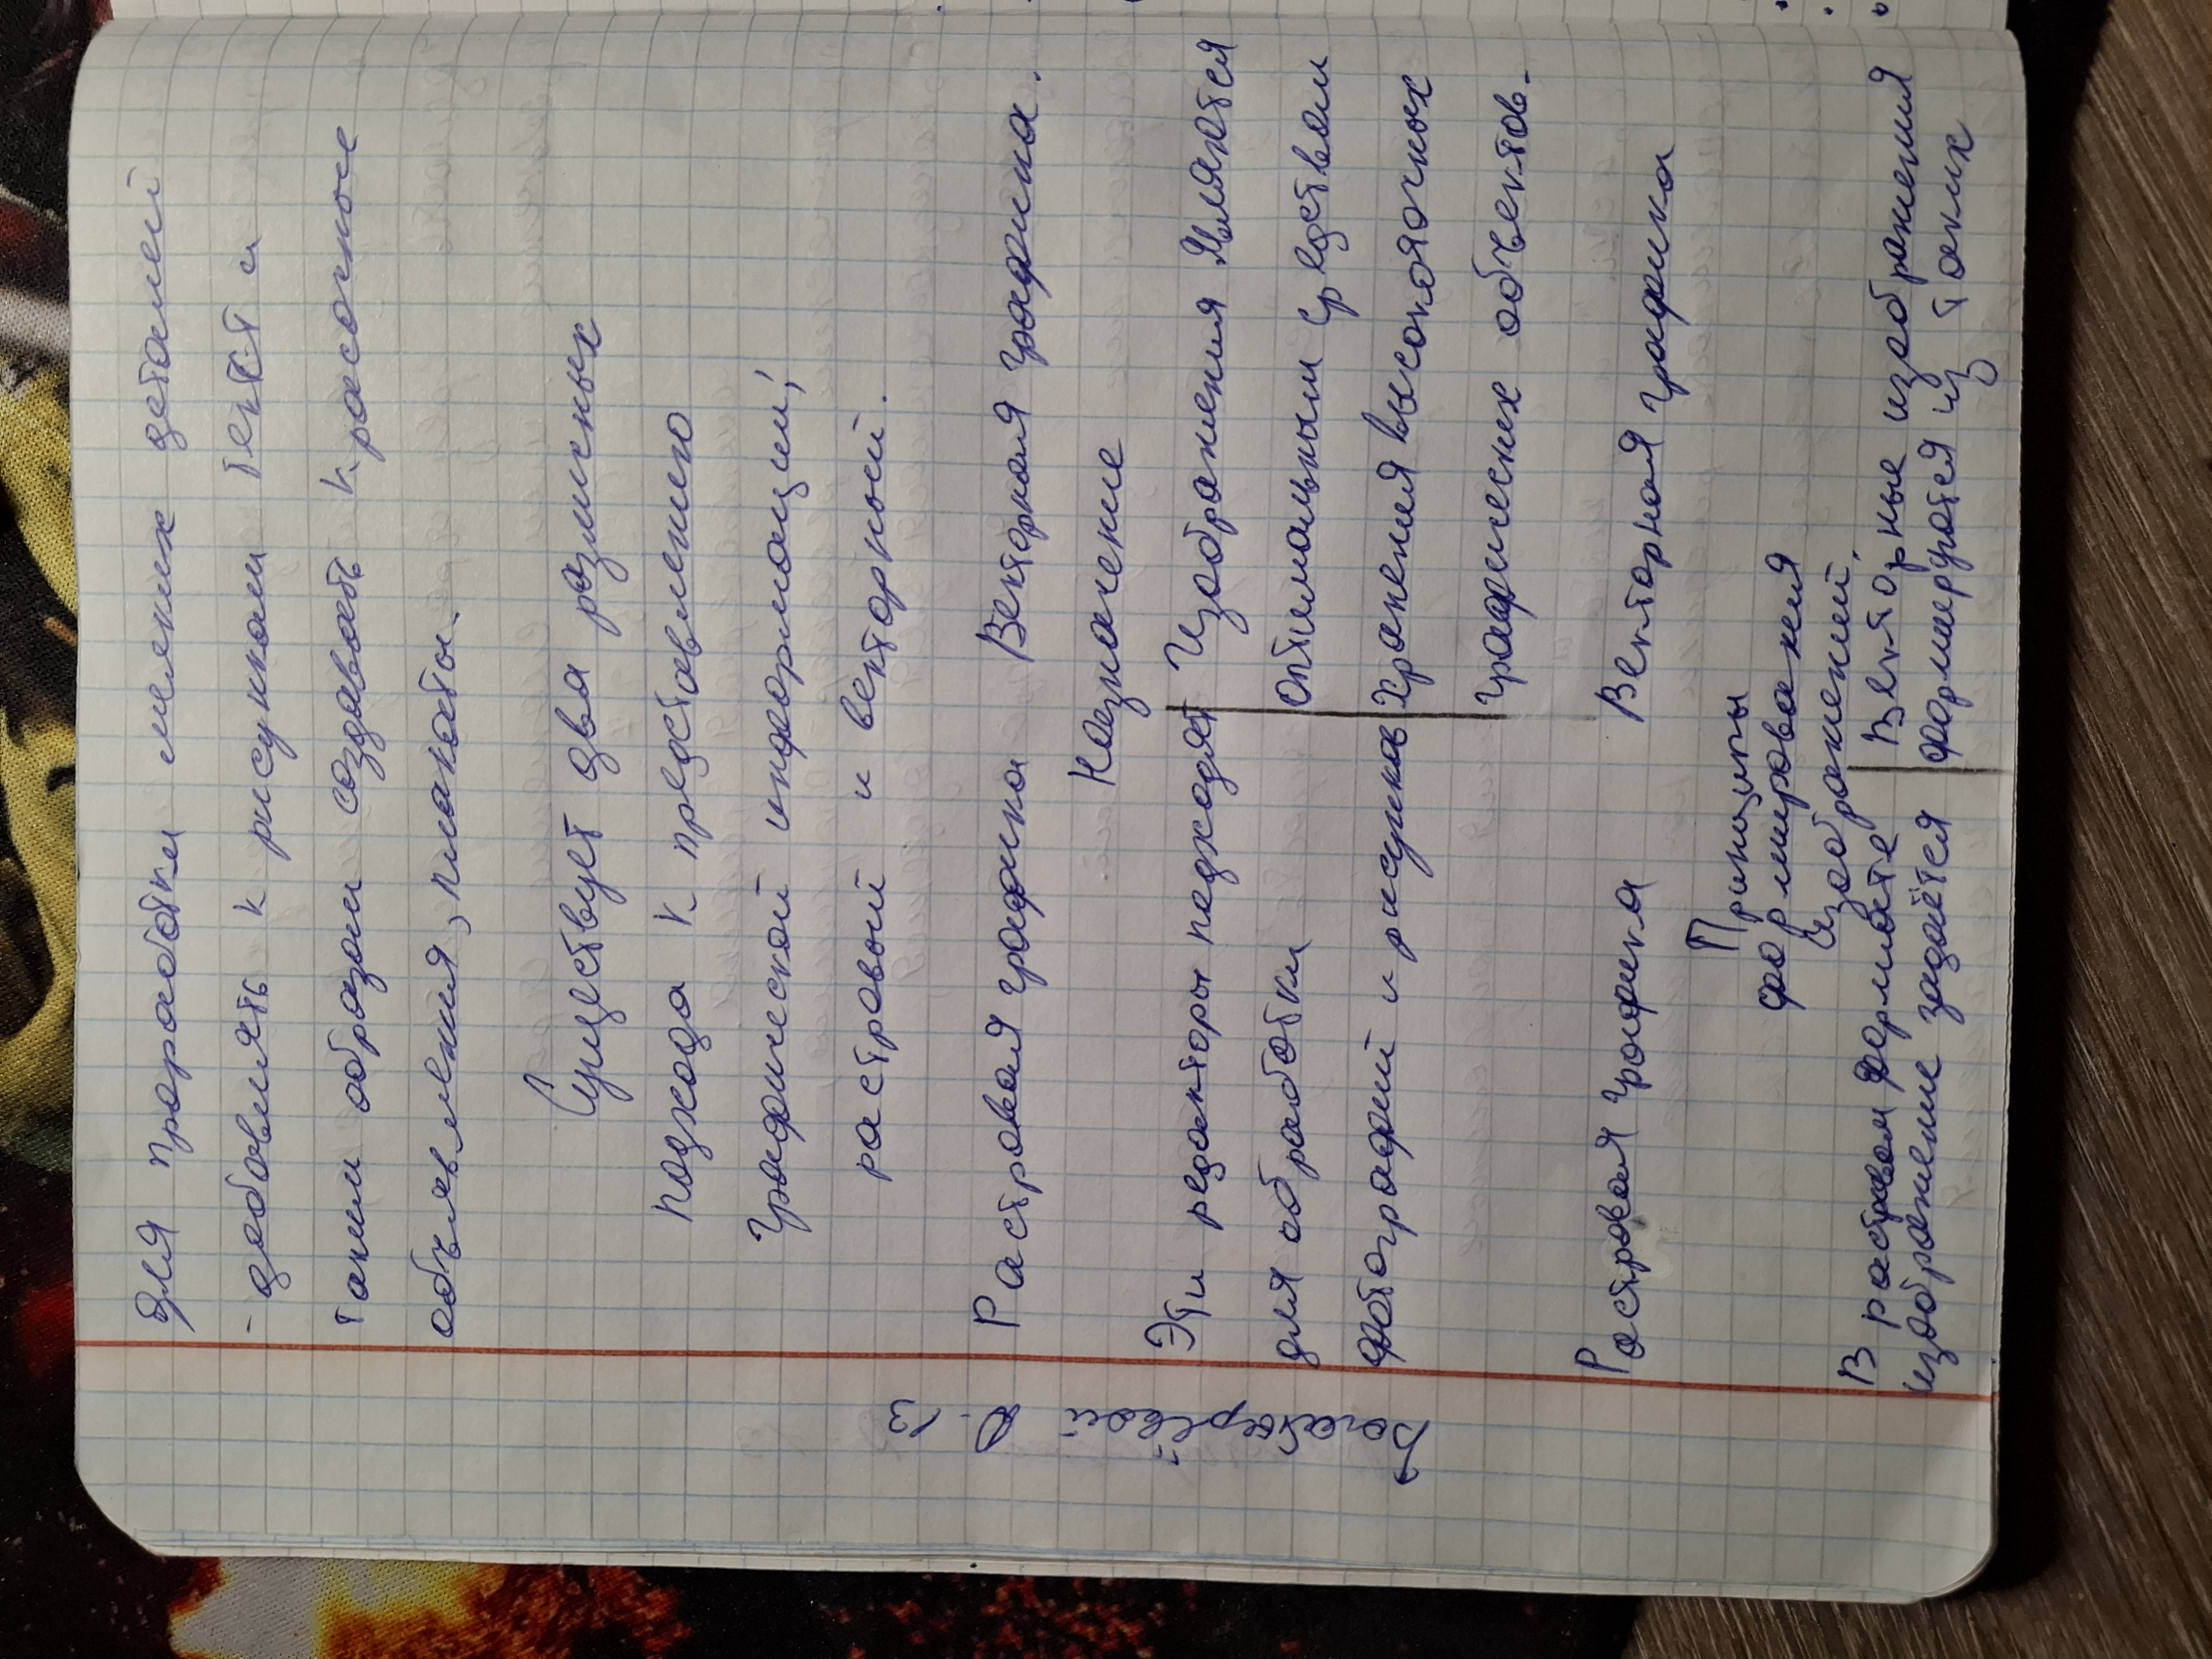 для проработки мелких деталей
- добавлять к рисункам текст и
таким образом создавать красочные
объявления, плакаты.
Существует два различных
подхода к представлению
графической информации;
растровый и векторный.
Растровая графика Векторная графика.
Назначение
Эти редакторы подходят Изображения являются
для обработки оптимальным средством
фотографий и рисунков хранения высокоточных
графических объектов.
Растровая графика Векторная графика
Принципы
формирования
изображений.
В растровом формате Векторные изображения
изображение задаётся формируются из таких